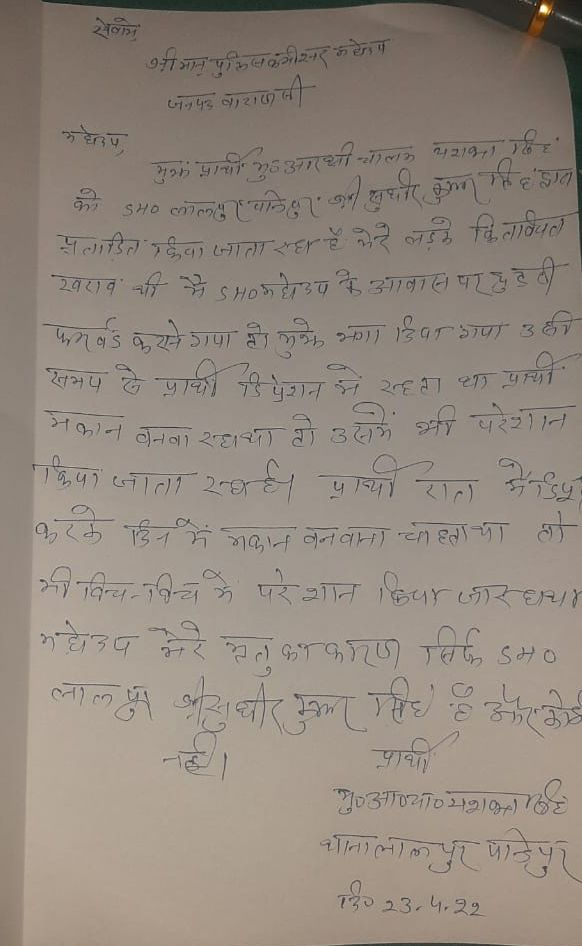 सेवामे,
श्रीमान् पुलिस कमीश्नर महोदय
जनपद वाराणसी
महोदय,
मुझ प्रार्थी मु० आरक्षी चालक यशवन्त सिंह
को SHO लालपुर पाण्डेयपुर श्री सुधीर कुमार सिंह द्वारा
प्रताडित किया जाता रहा है मेरे लड़के कि तबियत
खराब थी मै SHO महोदय के आवास पर छुट्टी
फारवर्ड कराने गया तो मुझे भगा दिया गया उसी
समय से प्रार्थी डिप्रेशन में रहता था प्रार्थी
मकान बनवा रहा था तो उसमें भी परेशान
किया जाता रहा है। प्रार्थी रात में डियू
करके दिन में मकान बनवाना चाहता था तो
भी विच-विच में परेशान किया जा रहा था
महोदय मेरे मृतु का कारण सिर्फ SHO
लालपुर श्री सुधीर कुमार सिंह है और कोई
नहीं।
प्रार्थी
मु०आ०चा० यशवन्त सिंह
थाना लालपुर पाण्डेयपुर
दि० 23.4.22